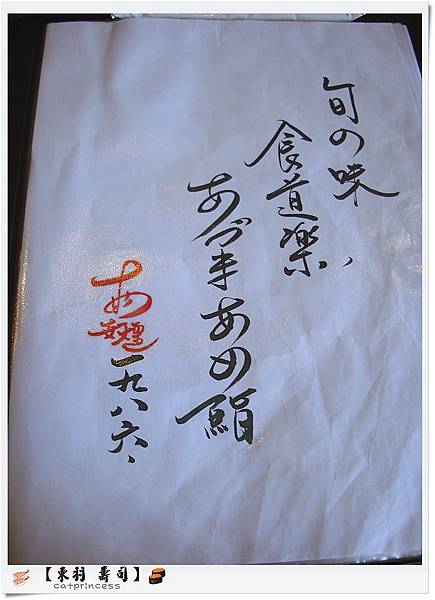 旬の味
食道楽
あづまあめ
一九八六、
【東羽 壽司】
catprincess